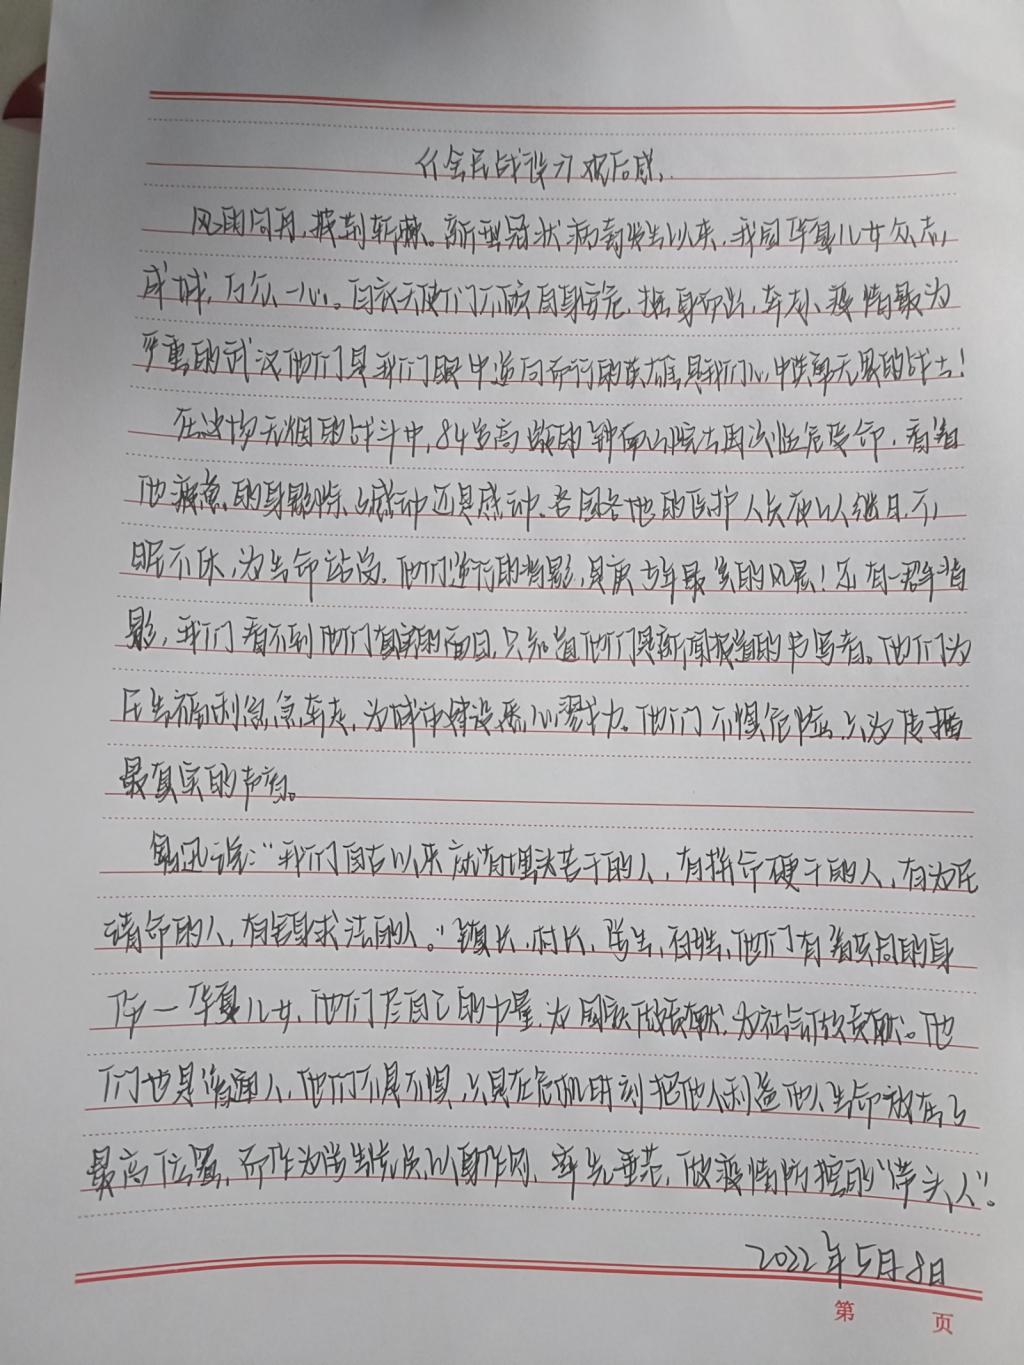 全民战疫习观后感.
风雨同舟,披荆斩棘。新型冠状病毒发生以来,我国华夏儿女众志
成城,万众一心。白衣天使们不顾自身安危,挺身而出,奔赴疫情最为
严重的武汉他们是我们眼中逆向而行的英雄是我们心中披荆无畏的战士!
在这场无烟的战斗中,84岁高龄的钟南山院士再次临危受命,看着
他疲惫的身影除了感动还是感动、各国各地的医护人员夜以继日,不
眠不休,为生命站岗。他们逆行的背影,是庚子年最美的风景!还有一群背
影,我们看不到他们真实的面目,只知道他们是新闻报道的书写者。他们为
民生福利急急奔走,为城市建设悉心竭力。他们不惧危险,只为传播
最真实的声音。
鲁迅说:“我们自古以来就有埋头苦干的人,有拼命硬干的人,有为民
请命的人,有舍身求法的人。”镇长,村长,学生,百姓,他们有着共同的身
份一华夏儿女,他们尽自己的力量,为国家做贡献,为社会做贡献。他
们也是普通人,他们不是不惧,只是在危机时刻把他人利益他人生命放在了
最高位置,而作为学生党员以身作则、率先垂范,做疫情防控的“带头人”。
2022年5月8日
第 页